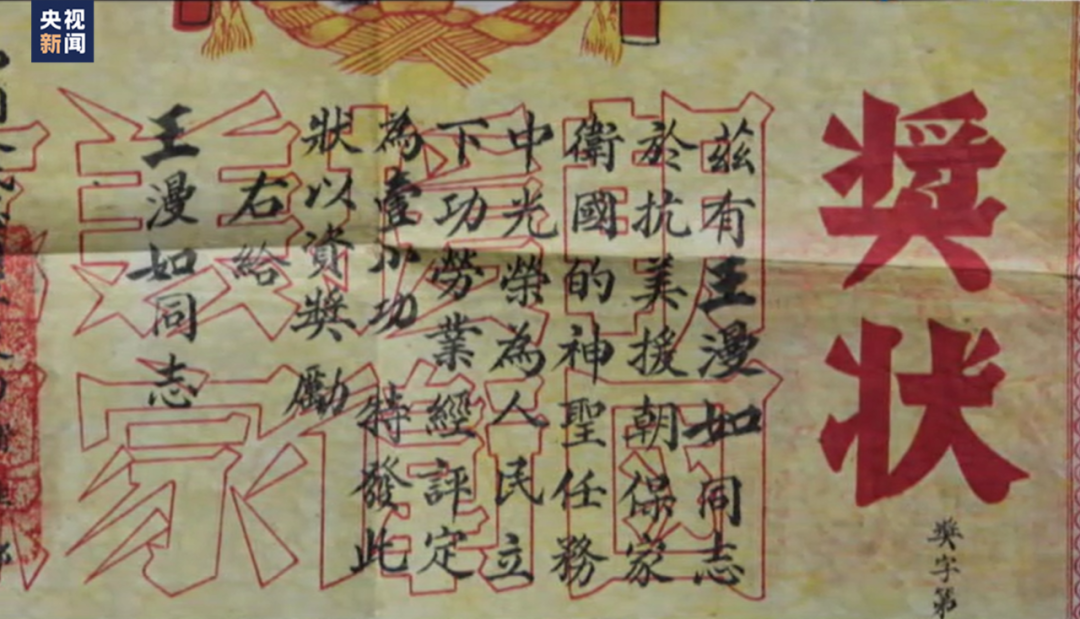 央视
新闻
奖状
奖字第
茲有王漫如同志
於抗美援朝保家
衛國的神聖任務
中光榮為人民立
下功勞業經評定
為壹小功特發此
狀以資獎勵
右給
王漫如同志
抗美援朝
保家衛國